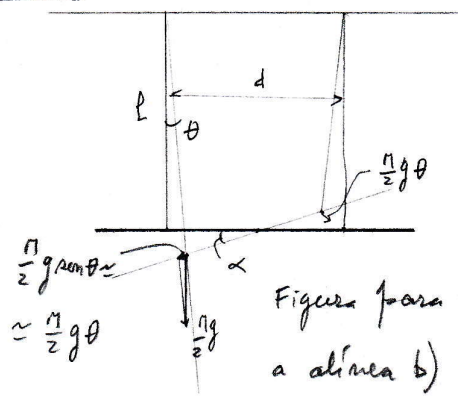 d
l
θ
M/2 g θ
M/2 g sen θ ≃
≃ M/2 g θ
α
M/2 g
Figura para
a alínea b)